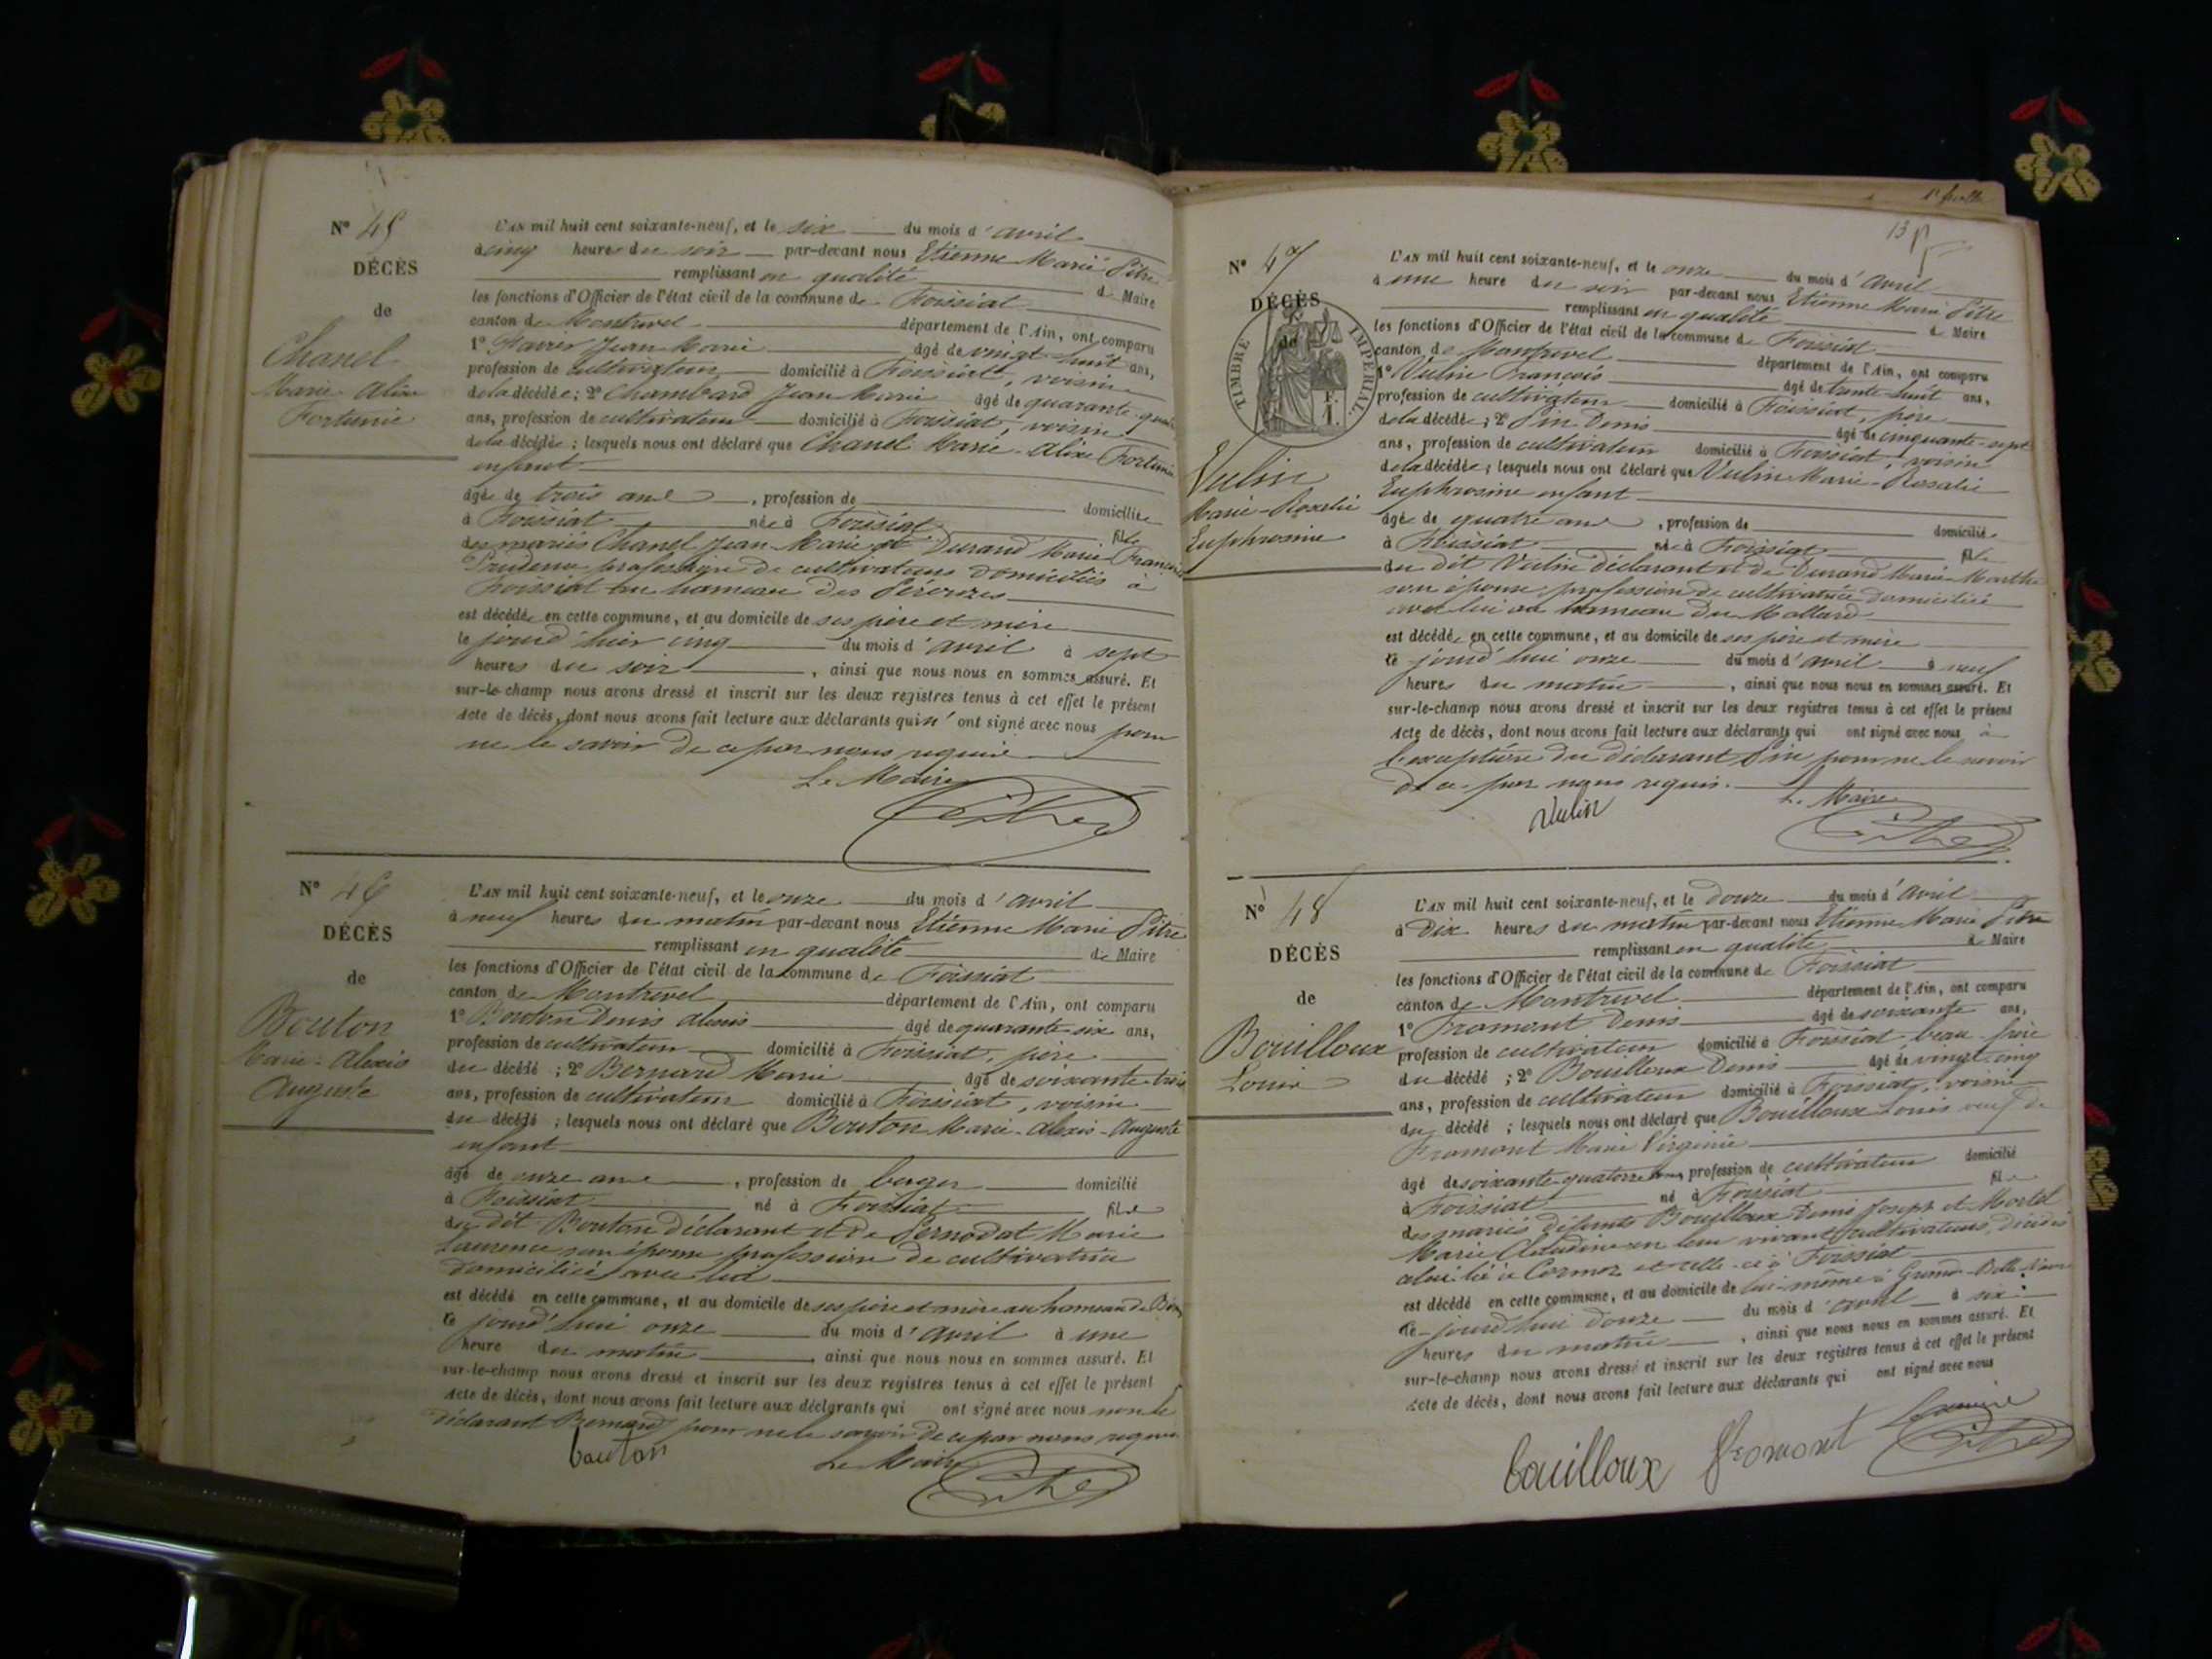 Nº 45
DÉCÈS
de
Chanel
Marie Alixe
Fortunée
L'AN mil huit cent soixante-neuf, et le six du mois d'avril
à cinq heures du soir par-devant nous Etienne Marie Pitre
remplissant en qualité de Maire
les fonctions d'Officier de l'état civil de la commune de Foissiat
canton de Montrevel département de l'Ain, ont comparu
1º Jean Marie âgé de vingt huit ans,
profession de cultivateur domicilié à Foissiat, voisin
de la décédée; 2º Chambard Jean Marie âgé de quarante
ans, profession de cultivateur domicilié à Foissiat, voisin
de la décédée; lesquels nous ont déclaré que Chanel Marie-Alixe Fortunée
enfant
âgé de trois ans, profession de domiciliée
à Foissiat née à Foissiat fille
des mariés Chanel Jean-Marie et Durand Marie Françoise
profession de cultivateurs domiciliés à
Foissiat au hameau des
est décédée en cette commune, et au domicile de ses père et mère
le jour d'hier cinq du mois d'avril à sept
heures du soir, ainsi que nous nous en sommes assuré. Et
sur-le-champ nous avons dressé et inscrit sur les deux registres tenus à cet effet le présent
Acte de décès, dont nous avons fait lecture aux déclarants qui n'ont signé avec nous pour
ne le savoir de ce par nous requis
Le Maire
Pitre
Nº 46
DÉCÈS
de
Bouton
Marie-Alexis
Auguste
L'AN mil huit cent soixante-neuf, et le onze du mois d'avril
à neuf heures du matin par-devant nous Etienne Marie Pitre
remplissant en qualité de Maire
les fonctions d'Officier de l'état civil de la commune de Foissiat
canton de Montrevel département de l'Ain, ont comparu
1º Bouton Denis Alexis âgé de quarante-six ans,
profession de cultivateur domicilié à Foissiat, père
du décédé; 2º Bernard Marie âgé de soixante-trois
ans, profession de cultivateur domicilié à Foissiat, voisin
du décédé; lesquels nous ont déclaré que Bouton Marie-Alexis-Auguste
enfant
âgé de onze ans, profession de berger domicilié
à Foissiat né à Foissiat fils
du dit Bouton déclarant et de Pernodat Marie
Laurence son épouse profession de cultivatrice
domiciliée avec lui
est décédé en cette commune, et au domicile de ses père et mère au hameau de
le jourd'hui onze du mois d'avril à une
heure du matin, ainsi que nous nous en sommes assuré. Et
sur-le-champ nous avons dressé et inscrit sur les deux registres tenus à cet effet le présent
Acte de décès, dont nous avons fait lecture aux déclarants qui ont signé avec nous non le
déclarant Bernard pour ne le savoir de ce par nous requis
bouton
Le Maire
Pitre
13
Nº 47
DÉCÈS
de
TIMBRE IMPÉRIAL
F. 1.
Vulin
Marie-Rosalie
Euphrosine
L'AN mil huit cent soixante-neuf, et le onze du mois d'avril
à une heure du soir par-devant nous Etienne Marie Pitre
remplissant en qualité de Maire
les fonctions d'Officier de l'état civil de la commune de Foissiat
canton de Montrevel département de l'Ain, ont comparu
1º Vulin François âgé de trente huit ans,
profession de cultivateur domicilié à Foissiat, père
de la décédée; 2º Pin Denis âgé de cinquante-sept
ans, profession de cultivateur domicilié à Foissiat, voisin
de la décédée; lesquels nous ont déclaré que Vulin Marie-Rosalie
Euphrosine enfant
âgé de quatre ans, profession de domiciliée
à Foissiat née à Foissiat fille
du dit Vulin déclarant et de Durand Marie Marthe
son épouse profession de cultivatrice domiciliée
avec lui au hameau du Mollard
est décédée en cette commune, et au domicile de ses père et mère
le jourd'hui onze du mois d'avril à neuf
heures du matin, ainsi que nous nous en sommes assuré. Et
sur-le-champ nous avons dressé et inscrit sur les deux registres tenus à cet effet le présent
Acte de décès, dont nous avons fait lecture aux déclarants qui ont signé avec nous à
l'exception du déclarant Pin pour ne le savoir
de ce par nous requis.
Vulin
Le Maire
Pitre
Nº 48
DÉCÈS
de
Bouilloux
Louis
L'AN mil huit cent soixante-neuf, et le douze du mois d'avril
à dix heures du matin par-devant nous Etienne Marie Pitre
remplissant en qualité de Maire
les fonctions d'Officier de l'état civil de la commune de Foissiat
canton de Montrevel département de l'Ain, ont comparu
1º Fromont Denis âgé de soixante ans,
profession de cultivateur domicilié à Foissiat beau-frère
du décédé; 2º Bouilloux Denis âgé de vingt-cinq
ans, profession de cultivateur domicilié à Foissiat, voisin
du décédé; lesquels nous ont déclaré que Bouilloux Louis veuf de
Fromont Marie Virginie
âgé de soixante-quatorze ans, profession de cultivateur domicilié
à Foissiat né à Foissiat fils
des mariés défunts Bouilloux Denis Joseph et Morlel
Marie Claudine en leur vivant cultivateurs, décédés
celui-ci à Cormoz et celle-ci à Foissiat
est décédé en cette commune, et au domicile de lui-même à Grand
le jourd'hui douze du mois d'avril à six
heures du matin, ainsi que nous nous en sommes assuré. Et
sur-le-champ nous avons dressé et inscrit sur les deux registres tenus à cet effet le présent
Acte de décès, dont nous avons fait lecture aux déclarants qui ont signé avec nous
bouilloux fromont Le maire
Pitre